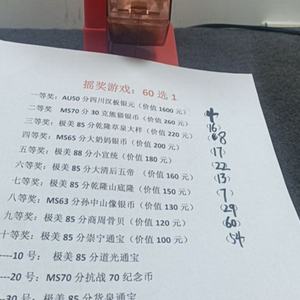 摇奖游戏：60 选 1
一等奖：AU50 分四川汉板银元（价值 1600 元）
二等奖 MS70 分 30 克熊猫银币（价值 260 元） 16
三等奖：极美 85 分乾隆阜泉大样（价值 220 元） 8
四等奖：MS65 分大奶妈银币（价值 200 元） 17
五等奖：极美 88 分小宣统（价值 180 元） 22
六等奖：极美 85 分大清后五帝（价值 160 元） 13
七等奖：极美 85 分乾隆山底隆（价值 150 元） 7
八等奖：MS63 分孙中山像银币（价值 130 元） 29
九等奖：极美 85 分商周骨贝（价值 120 元） 60
十等奖：极美 85 分崇宁通宝（价值 100 元） 54
----10 号：极美 85 分道光通宝
---20 号：MS70 分抗战 70 纪念币
-30 号：极美 85 分货泉通宝